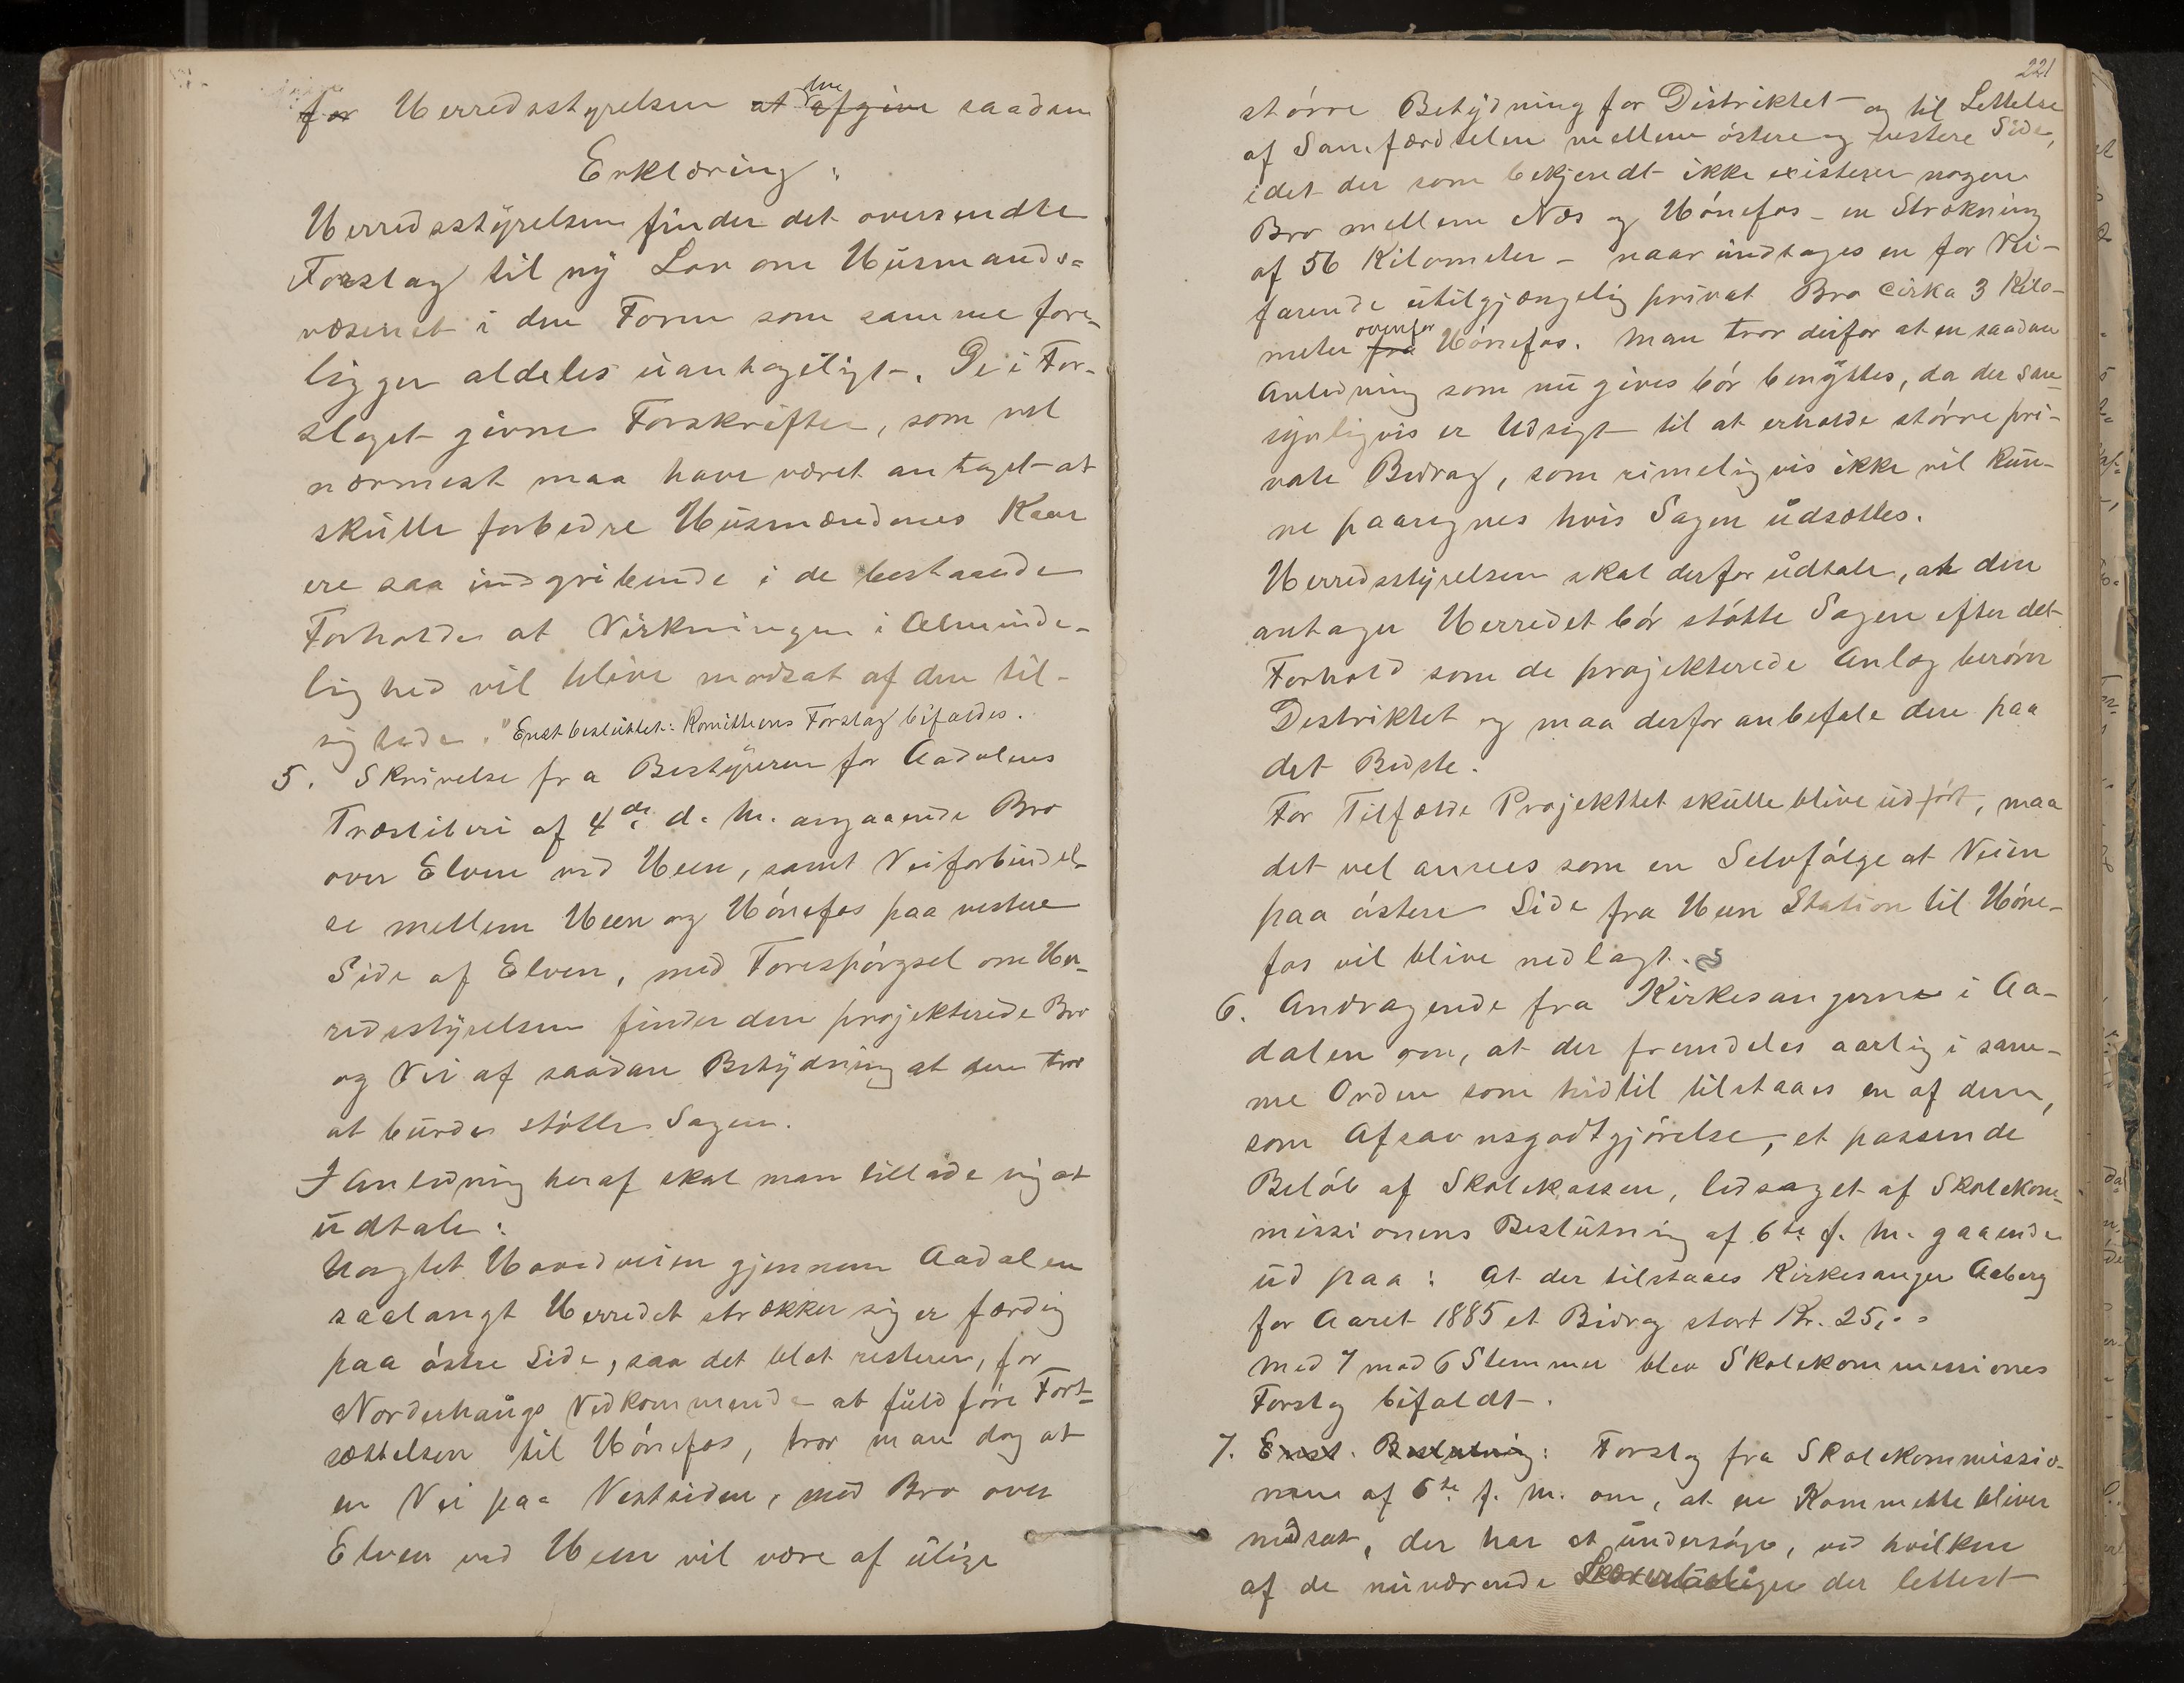 for Herredsstyrelsen at afgive saadan
Erklæring:
Herredsstÿrelsen finder det oversendte
Forslag til nÿ Lov om Huusmands=
væsenet i den Form som samme fore-
ligger aldeles uantageligt. De i For-
slaget givne Forskrifter, som vel
nærmest maa have været antaget at
skulle forbedre Huusmændenes Kaar
ere saa indgribende i de bestaaende
Forholde at Virkningen i Alminde-
lighed vil blive modsat af den til-
sigtede." Enst besluttet: Komitteens Forslag bifaldes.
5. Skrivelse fra Bestÿreren for Aadalens
Træsliberi af 4de d. M. angaaende Bro
over Elven ved Heen, samt Veiforbindel-
se mellem Heen og Hönefos paa vestere
Side af Elven, med Forespörgsel om Her-
redsstÿrelsen finder den projekterede Bro
og Vei af saadan Betÿdning at den tror
at burde stötte Sagen.
I Anledning heraf skal man tillade sig at
udtale:
Uagtet Hovedveien gjennem Aadalen
saalangt Herredet strækker sig er færdig
paa östre Side, saa det blot resterer, for
Norderhaugs Vedkommende at fuldföre Fort-
sættelsen til Hönefos, tror man dog at
en Vei paa Vestsiden, med Bro over
Elven ved Heen vil være af ulige
221
större Betÿdning for Distriktet og til Lettelse
af Samfærdselen mellem östere og vestere Side,
idet der som bekjendt ikke existerer nogen
Bro mellem Næs og Hönefos - en Strækning
af 56 Kilometer - naar undtages en for Vei-
farende utilgjængelig privat Bro cirka 3 Kilo-
meter fra ovenfor Hönefos. Man tror derfor at en saadan
Anledning som nu gives bör benÿttes, da der san-
synligvis er Udsigt til at erholde större pri-
vate Bidrag, som rimeligvis ikke vil kun-
ne paaregnes hvis Sagen udsættes.
Herredsstÿrelsen skal derfor udtale, at den
antager Herredet bör stötte Sagen efter det
Forhold som de projekterede Anlæg beröre
Destriktet og maa derfor anbefale den paa
det Bedste.
For Tilfælde Projekttet skulle blive udfört, maa
det vel ansees som en Selvfölge at Veien
paa östere Side fra Heen Station til Höne-
fos vil blive nedlagt.
6. Andragende fra Kirkesangerne i Aa-
dalen om, at der fremdeles aarlig i sam-
me Orden som hidtil tilstaaes en af dem,
som Afsavnsgodtgjörelse, et passende
Belöb af Skolekassen, ledsaget af Skolekom-
missionens Beslutning af 6te f. M. gaaende
ud paa: At der tilstaaes Kirkesanger Aaberg
for Aaret 1885 et Bidrag stort Kr. 25,00
Med 7 mod 6 Stemmer blev Skolekommissiones
Forslag bifaldt.
7. Enst. Beslutning: Forslag fra Skolekommissio-
nen af 6te f. M. om, at en Kommette bliver
nedsat, der har at undersöge, ved hvilken
af de nuværende der lettest